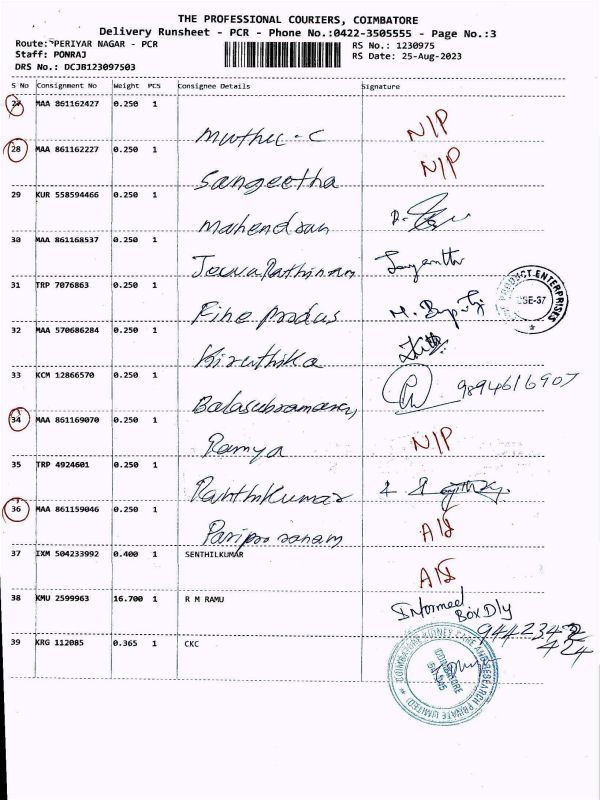 THE PROFESSIONAL COURIERS, COIMBATORE
Delivery Runsheet - PCR - Phone No.:0422-3505555 - Page No.:3
Route: PERIYAR NAGAR - PCR
RS No.: 1230975
Staff: PONRAJ
RS Date: 25-Aug-2023
DRS No.: DCJB123097503
S No Consignment No Weight PCS Consignee Details Signature
27 MAA 861162427 0.250 1
Muthu - C N/P
28 MAA 861162227 0.250 1
Sangeetha N/P
29 KUR 558594466 0.250 1
Mahendran
30 MAA 861168537 0.250 1
31 TRP 7076863 0.250 1
Fine Produs
PRODUCT ENTERPRISES
CSE-37
32 MAA 570686284 0.250 1
Kiruthika
33 KCM 12866570 0.250 1
9894616907
34 MAA 861169070 0.250 1
Ramya N/P
35 TRP 4924601 0.250 1
36 MAA 861159046 0.250 1
37 IXM 504233992 0.400 1 SENTHILKUMAR
38 KMU 2599963 16.700 1 R M RAMU
Informed
Box Dly
39 KRG 112085 0.365 1 CKC
COIMBATORE KIDNEY CARE AND RESEARCH PRIVATE LIMITED
COIMBATORE